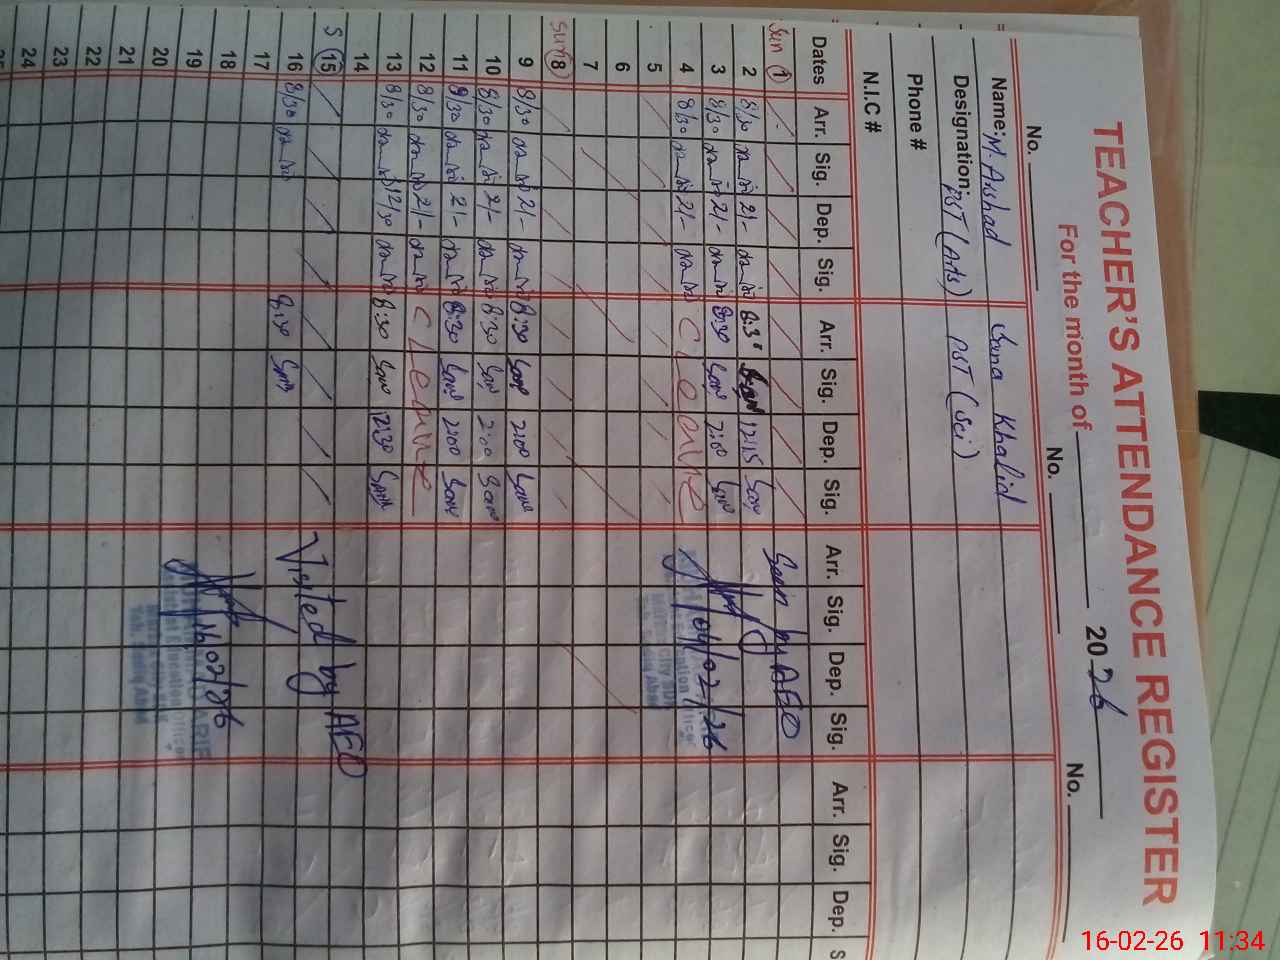 TEACHER'S ATTENDANCE REGISTER
For the month of 2026
No. No. No.
Name: M. Arshad Sana Khalid
Designation: PST (Arts) PST (Sci)
Phone #
N.I.C #
Dates Arr. Sig. Dep. Sig. Arr. Sig. Dep. Sig. Arr. Sig. Dep. Sig. Arr. Sig. Dep. S
Sun 1 Seen by AEO
2 8/30 2/- 8:30 12:15
3 8/30 2/- 8:30 Sana 2:00 Sana
4 8/30 2/- C Leave 04/02/26
5
6
7
Sun 8
9 8/30 2/- 8:30 Sana 2:00 Sana
10 8/30 2/- 8:30 Sana 2:00 Sana
11 8/30 2/- 8:30 Sana 2:00 Sana
12 8/30 2/- C Leave
13 8/30 12/30 8:30 Sana 12:30 Sana
14
S 15
16 8/30 8:30 Sana Visited by AEO
17
18
19
20
21
22
23
24
25
16-02-26 11:34